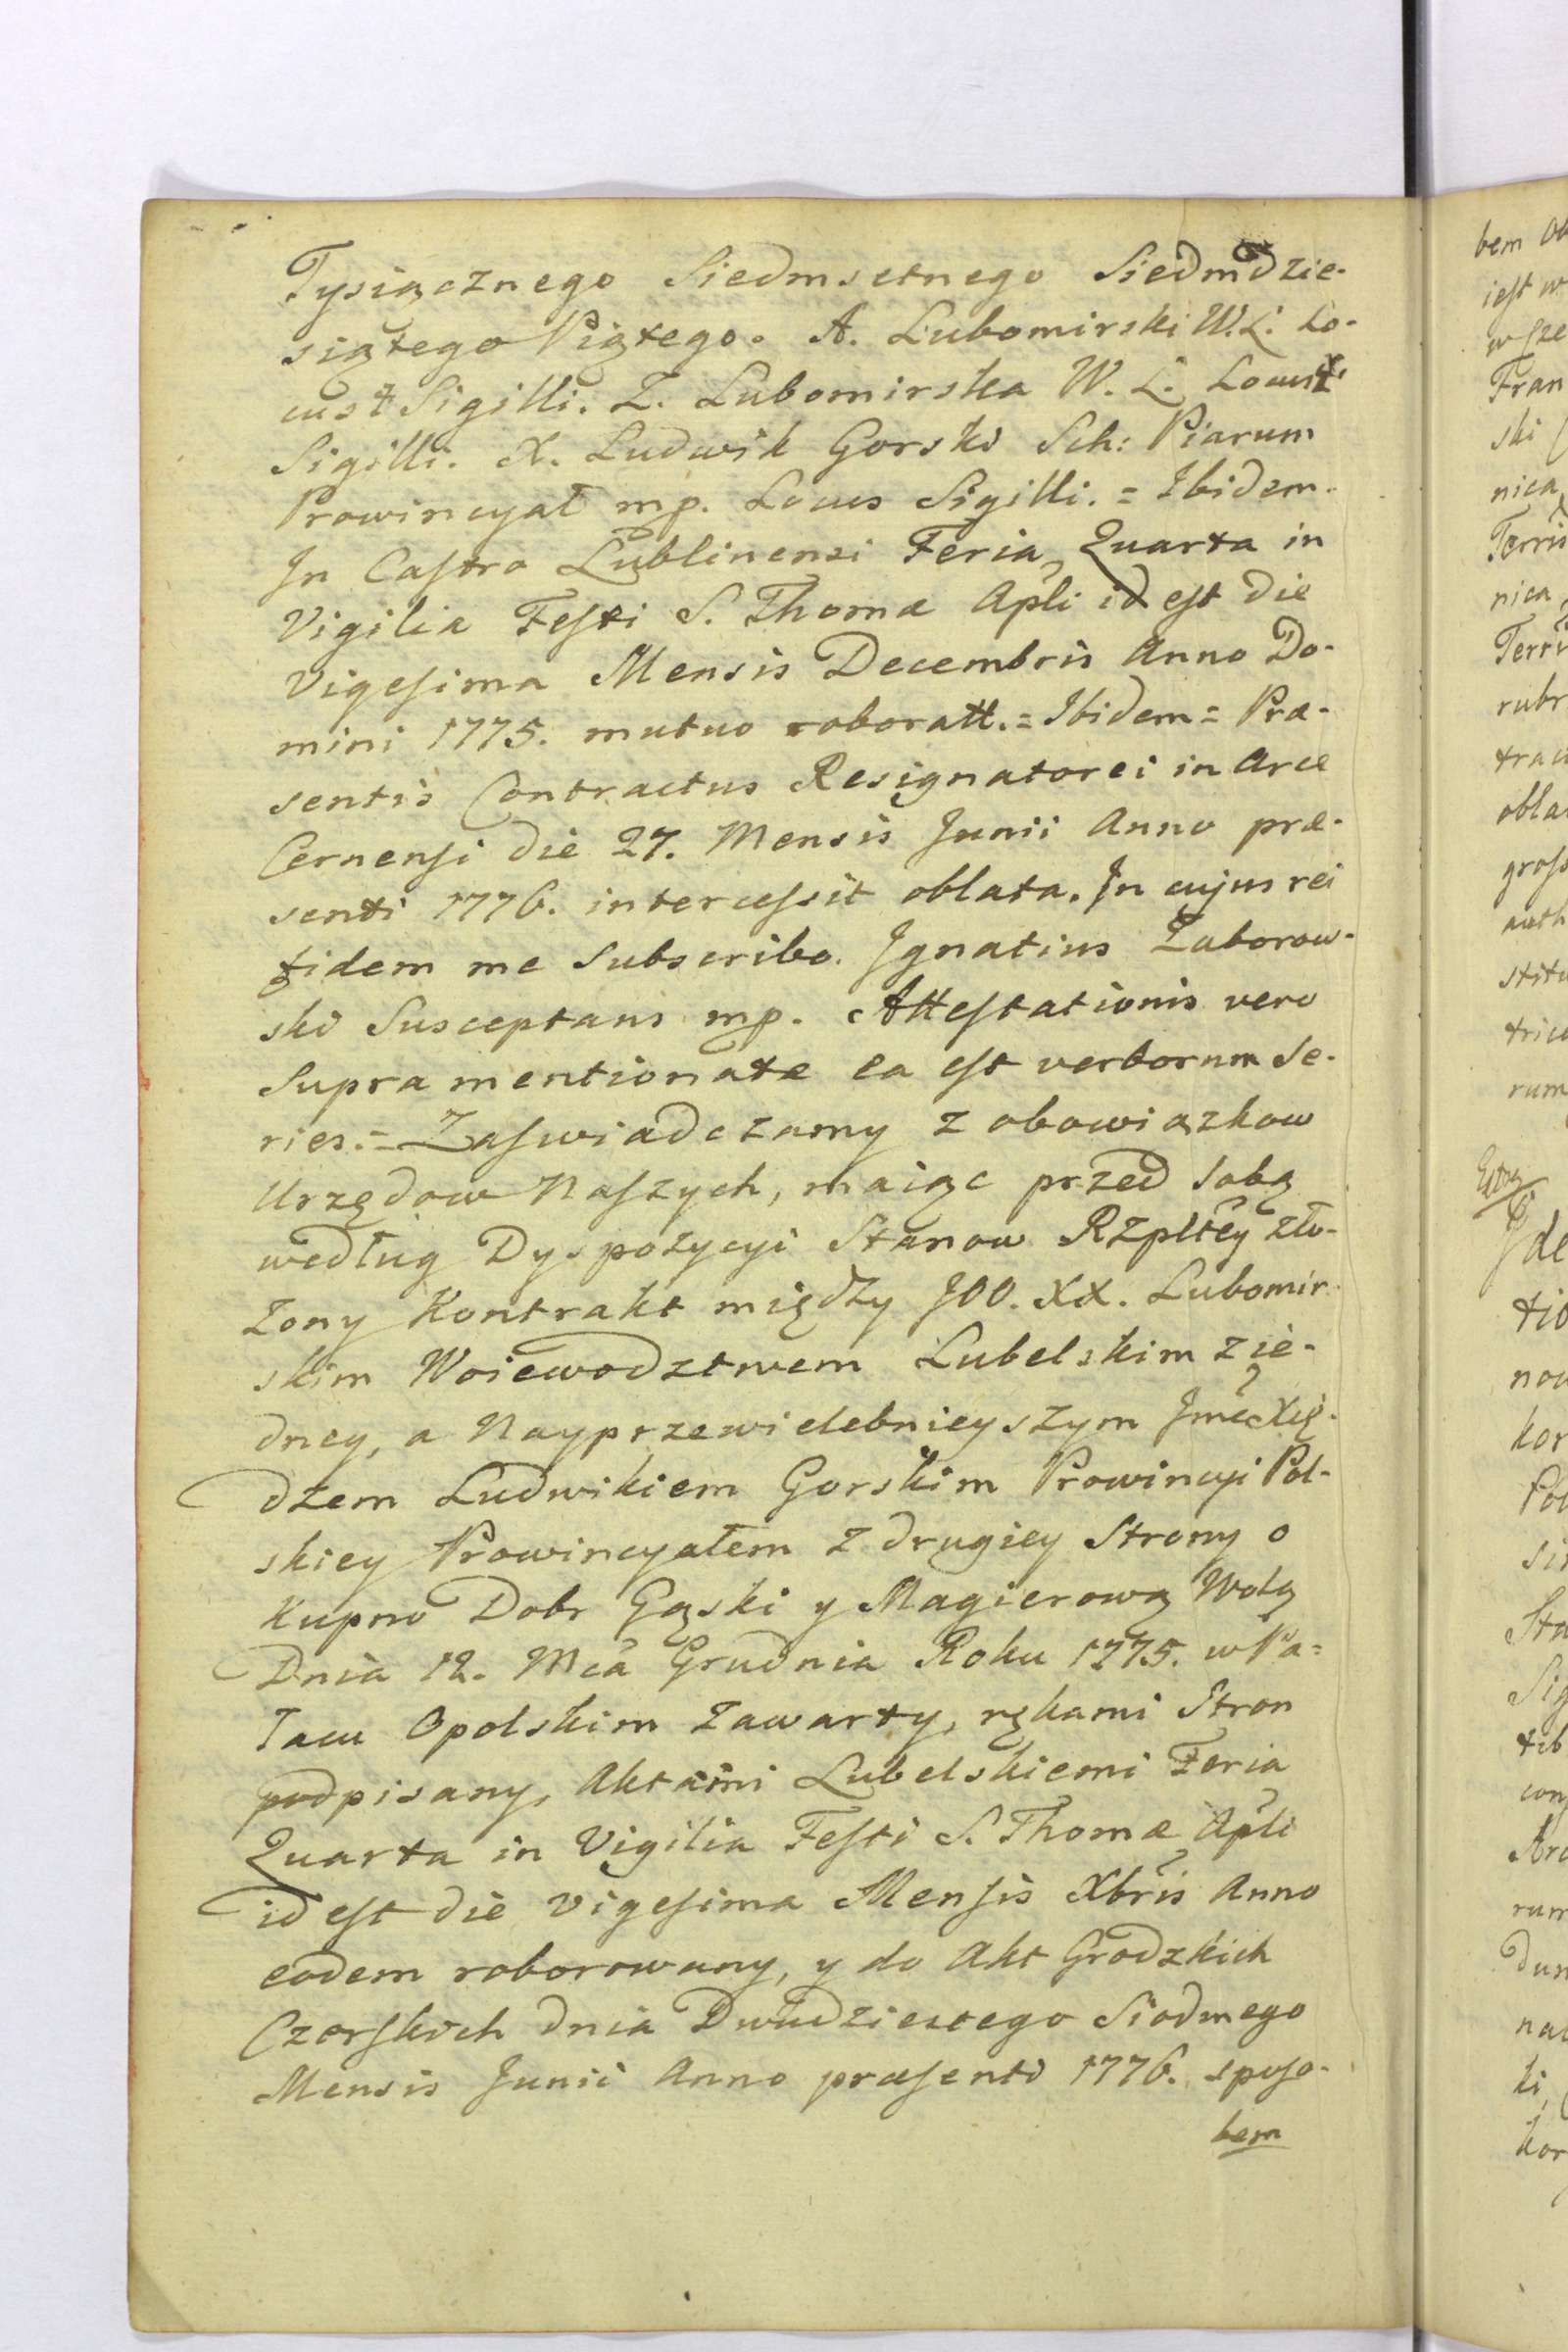 Tysiącznego Siedmsetnego Siedmdzie-
siątego Piątego. A. Lubomirski W. L. Lo-
cus t Sigilli. Z. Lubomirska W. L. Locus t
Sigilli. X. Ludwik Gorski Sch: Piarum
Prowincyał mp. Locus Sigilli. = Ibidem.
In Castro Lublinensi Feria Quarta in
Vigilia Festi S. Thomæ Apli id est die
Vigesima Mensis Decembris Anno Do-
mini 1775. mutuo roboratt. = Ibidem = Præ-
sentis Contractus Resignatorei in Arce
Cernensi die 27. Mensis Junii Anno præ-
senti 1776. intercessit oblata. In cujus rei
fidem me Subscribo. Ignatius Zaborow-
ski Susceptans mp. Attestationis vero
Supra mentionatæ ea est verborum Se-
ries. = Zaswiadczamy z obowiązkow
Urzędow Naszych, maiąc przed Sobą
według Dyspozycyi Stanow Rzpltey zło-
żony Kontrakt między JOO. XX. Lubomir-
skim Woiewodztwem Lubelskim z ie-
dney, a Nayprzewielebnieyszym Jmć Xię-
dzem Ludwikiem Gorskim Prowincyi Pol-
skiey Prowincyałem z drugiey Strony o
Kupno Dobr Gąski y Magierową Wolą
Dnia 12. Mca Grudnia Roku 1775. w Pa=
łacu Opolskim zawarty, rękami Stron
podpisany, Aktami Lubelskiemi Feria
Quarta in Vigilia Festi S. Thomæ Apli
id est die vigesima Mensis Xbris Anno
eodem roborowany, y do Akt Grodzkich
Czerskich dnia Dwudziestego Siodmego
Mensis Junii Anno præsenti 1776. sposo-
bem